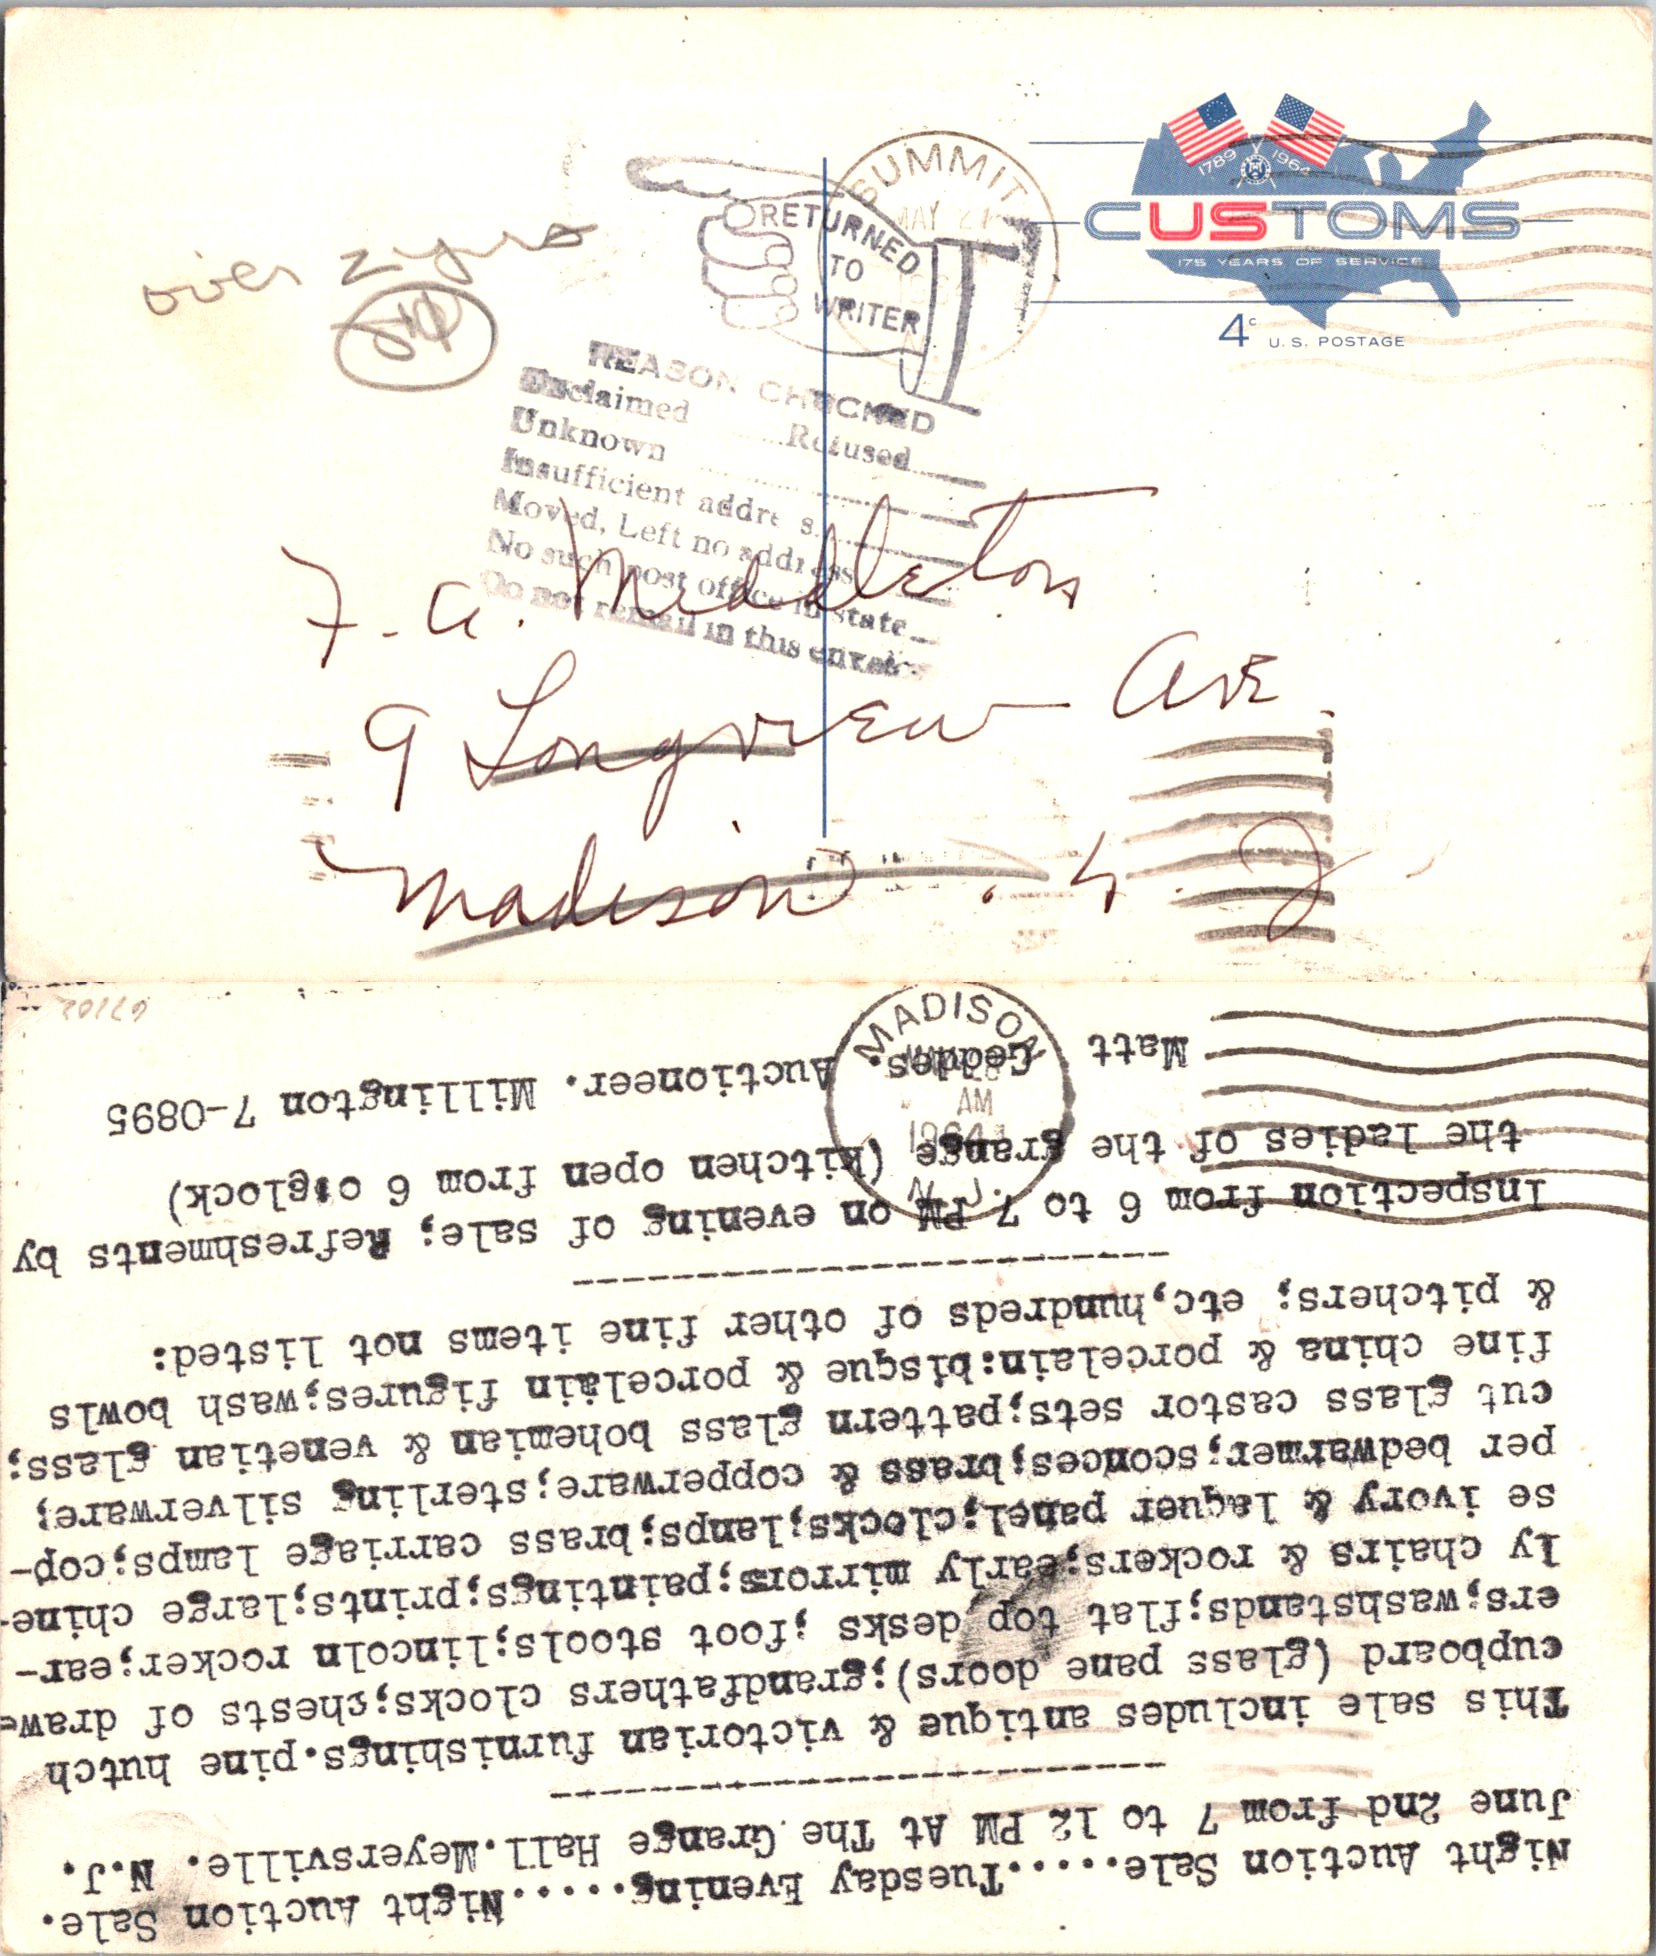 SUMMIT
MAY 27
N. J.
1789 1964
CUSTOMS
175 YEARS OF SERVICE
4c U.S. POSTAGE
RETURNED
TO
WRITER
over 2 yrs
REASON CHECKED
Unclaimed Refused
Unknown
Insufficient address
Moved, Left no address
No such post office in state
Do not remail in this envelope
F. A. Middleton
9 Longview Ave
Madison . N. J.
67102
MADISON
AM
1964
N. J.
Night Auction Sale......Tuesday Evening......Night Auction Sale.
June 2nd from 7 to 12 PM At The Grange Hall.Meyersville. N.J.
------------------------
This sale includes antique & victorian furnishings.pine hutch
cupboard (glass pane doors);grandfathers clocks;chests of draw-
ers;washstands;flat top desks ;foot stools;lincoln rocker;ear-
ly chairs & rockers;early mirrors;paintings;prints;large chine-
se ivory & laquer panel;clocks;lamps;brass carriage lamps;cop-
per bedwarmer;sconces;brass & copperware;sterling silverware;
cut glass castor sets;pattern glass bohemian & venetian glass;
fine china & porcelain:bisque & porcelain figures;wash bowls
& pitchers; etc,hundreds of other fine items not listed:
-----------------------
Inspection from 6 to 7 PM on evening of sale; Refreshments by
the ladies of the grange (kitchen open from 6 o'clock)
Matt Geddes. Auctioneer. Millington 7-0895